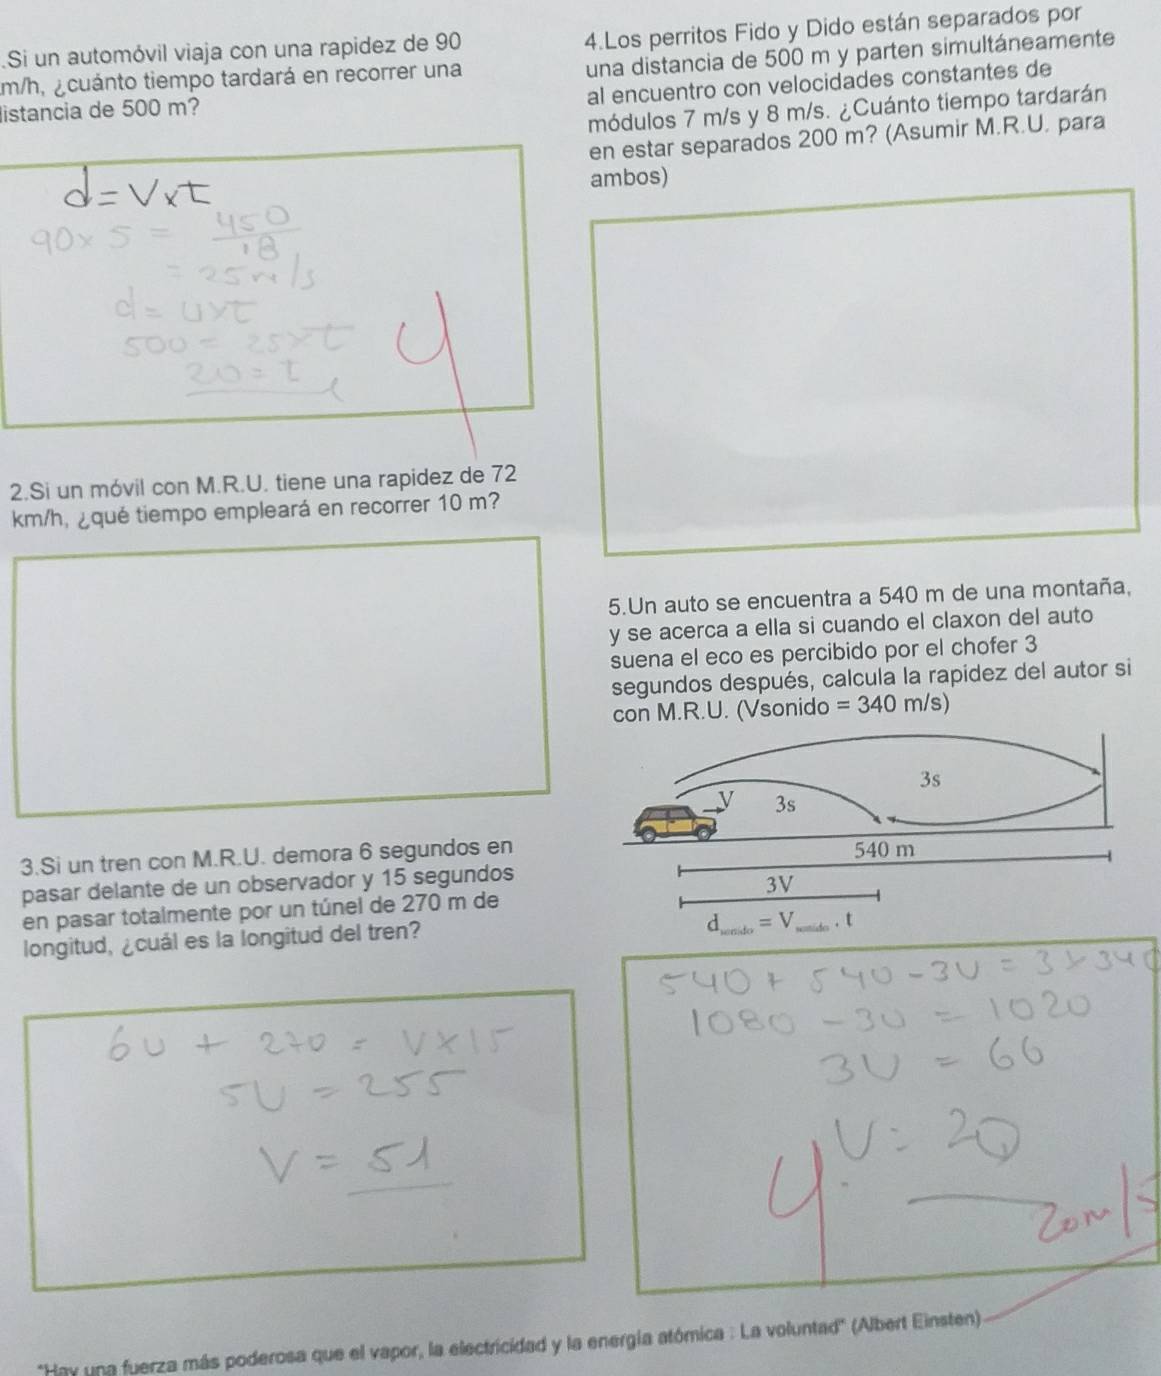 .Si un automóvil viaja con una rapidez de 90
m/h, ¿cuánto tiempo tardará en recorrer una
distancia de 500 m?
d = V x t
90 x 5 = 450
18
= 25 m/s
d = v x t
500 = 25 x t
20 = t
4
2.Si un móvil con M.R.U. tiene una rapidez de 72
km/h, ¿qué tiempo empleará en recorrer 10 m?
3.Si un tren con M.R.U. demora 6 segundos en
pasar delante de un observador y 15 segundos
en pasar totalmente por un túnel de 270 m de
longitud, ¿cuál es la longitud del tren?
6v + 270 = V x 15
5v = 255
V = 51
4.Los perritos Fido y Dido están separados por
una distancia de 500 m y parten simultáneamente
al encuentro con velocidades constantes de
módulos 7 m/s y 8 m/s. ¿Cuánto tiempo tardarán
en estar separados 200 m? (Asumir M.R.U. para
ambos)
5.Un auto se encuentra a 540 m de una montaña,
y se acerca a ella si cuando el claxon del auto
suena el eco es percibido por el chofer 3
segundos después, calcula la rapidez del autor si
con M.R.U. (Vsonido = 340 m/s)
3s
V 3s
540 m
3V
d sonido = V sonido . t
540 + 540 - 3v = 3 x 340
1080 - 3v = 1020
3v = 60
v = 20
4
20 m/s
"Hay una fuerza más poderosa que el vapor, la electricidad y la energía atómica : La voluntad" (Albert Einsten)